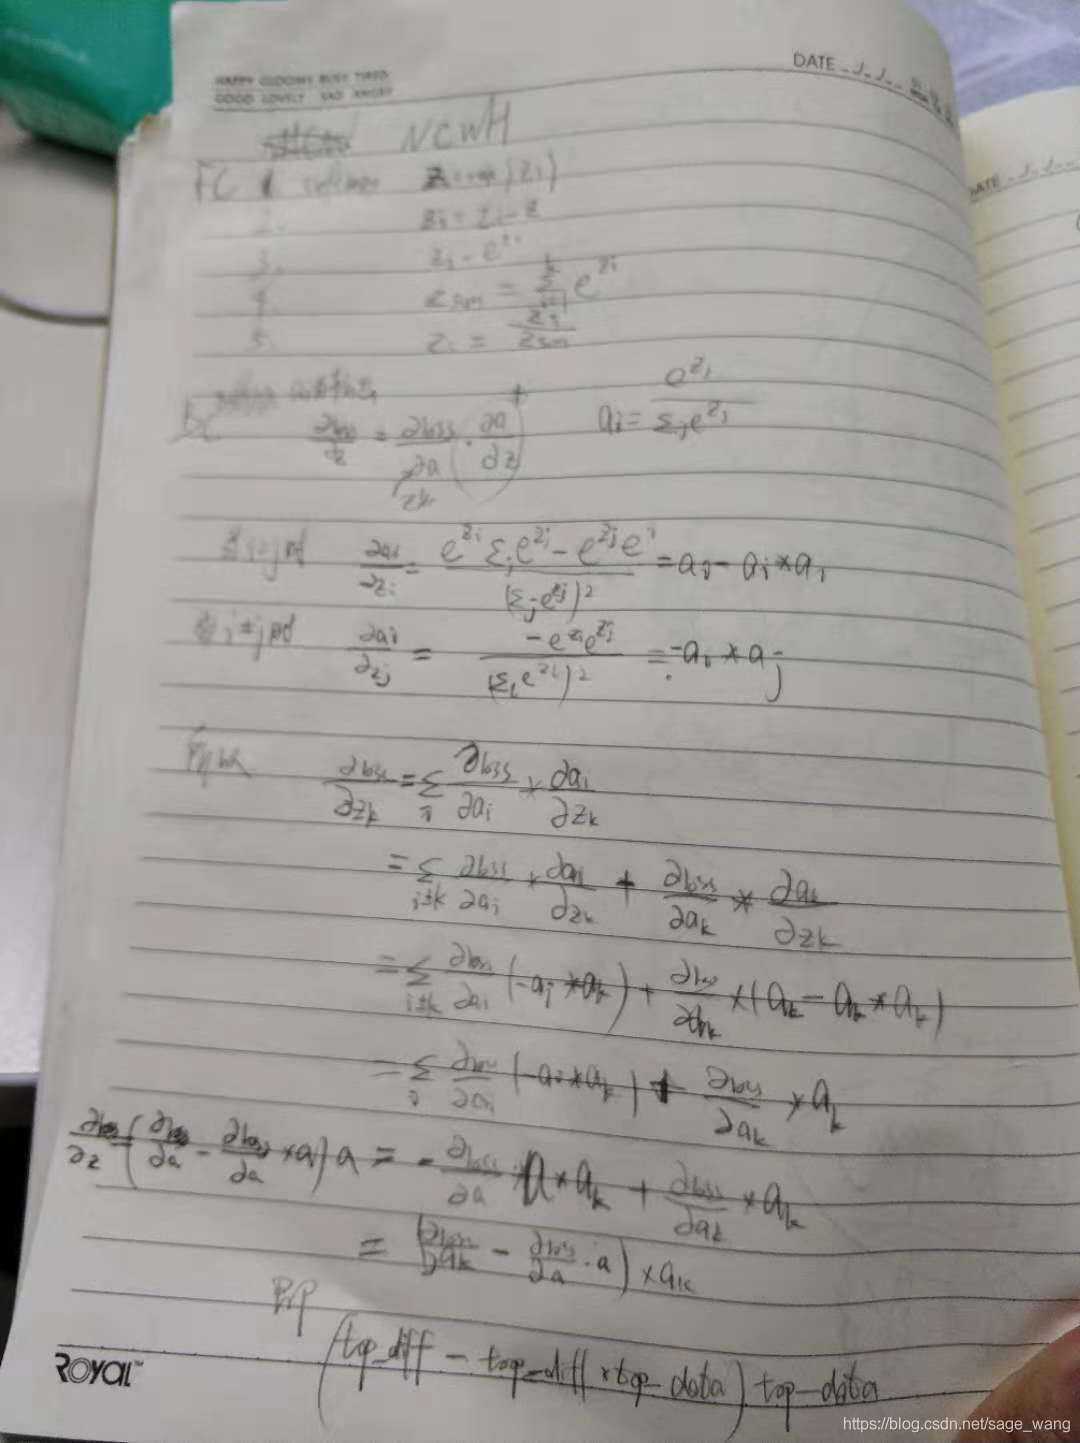 HAPPY GLOOMY BUSY TIRED
GOOD LOVELY SAD ANGRY
DATE
DATE
NCWH
FC 1 softmax z = max(zi)
2. zi = zi - z
3. zi = e^zi
4. zsum = Σ e^zi
5. zi = zi / zsum
∂loss/∂z = ∂loss/∂a · (∂a/∂z) ai = e^zi / Σj e^zj
i=j时 ∂ai/∂zi = (e^zi Σj e^zj - e^zj e^i) / (Σj e^zj)^2 = ai - ai * ai
i≠j时 ∂ai/∂zj = -e^zi e^zj / (Σi e^zi)^2 = -ai * aj
所以 ∂loss/∂zk = Σi ∂loss/∂ai * ∂ai/∂zk
= Σi≠k ∂loss/∂ai * ∂ai/∂zk + ∂loss/∂ak * ∂ak/∂zk
= Σi≠k ∂loss/∂ai (-ai * ak) + ∂loss/∂ak * (ak - ak * ak)
= Σi ∂loss/∂ai (-ai * ak) + ∂loss/∂ak * ak
∂loss/∂z = (∂loss/∂a - ∂loss/∂a * a) a = - ∂loss/∂a * a * ak + ∂loss/∂ak * ak
= (∂loss/∂ak - ∂loss/∂a · a) * ak
即
(top_diff - top_diff * top_data) top_data
ROYAL
https://blog.csdn.net/sage_wang